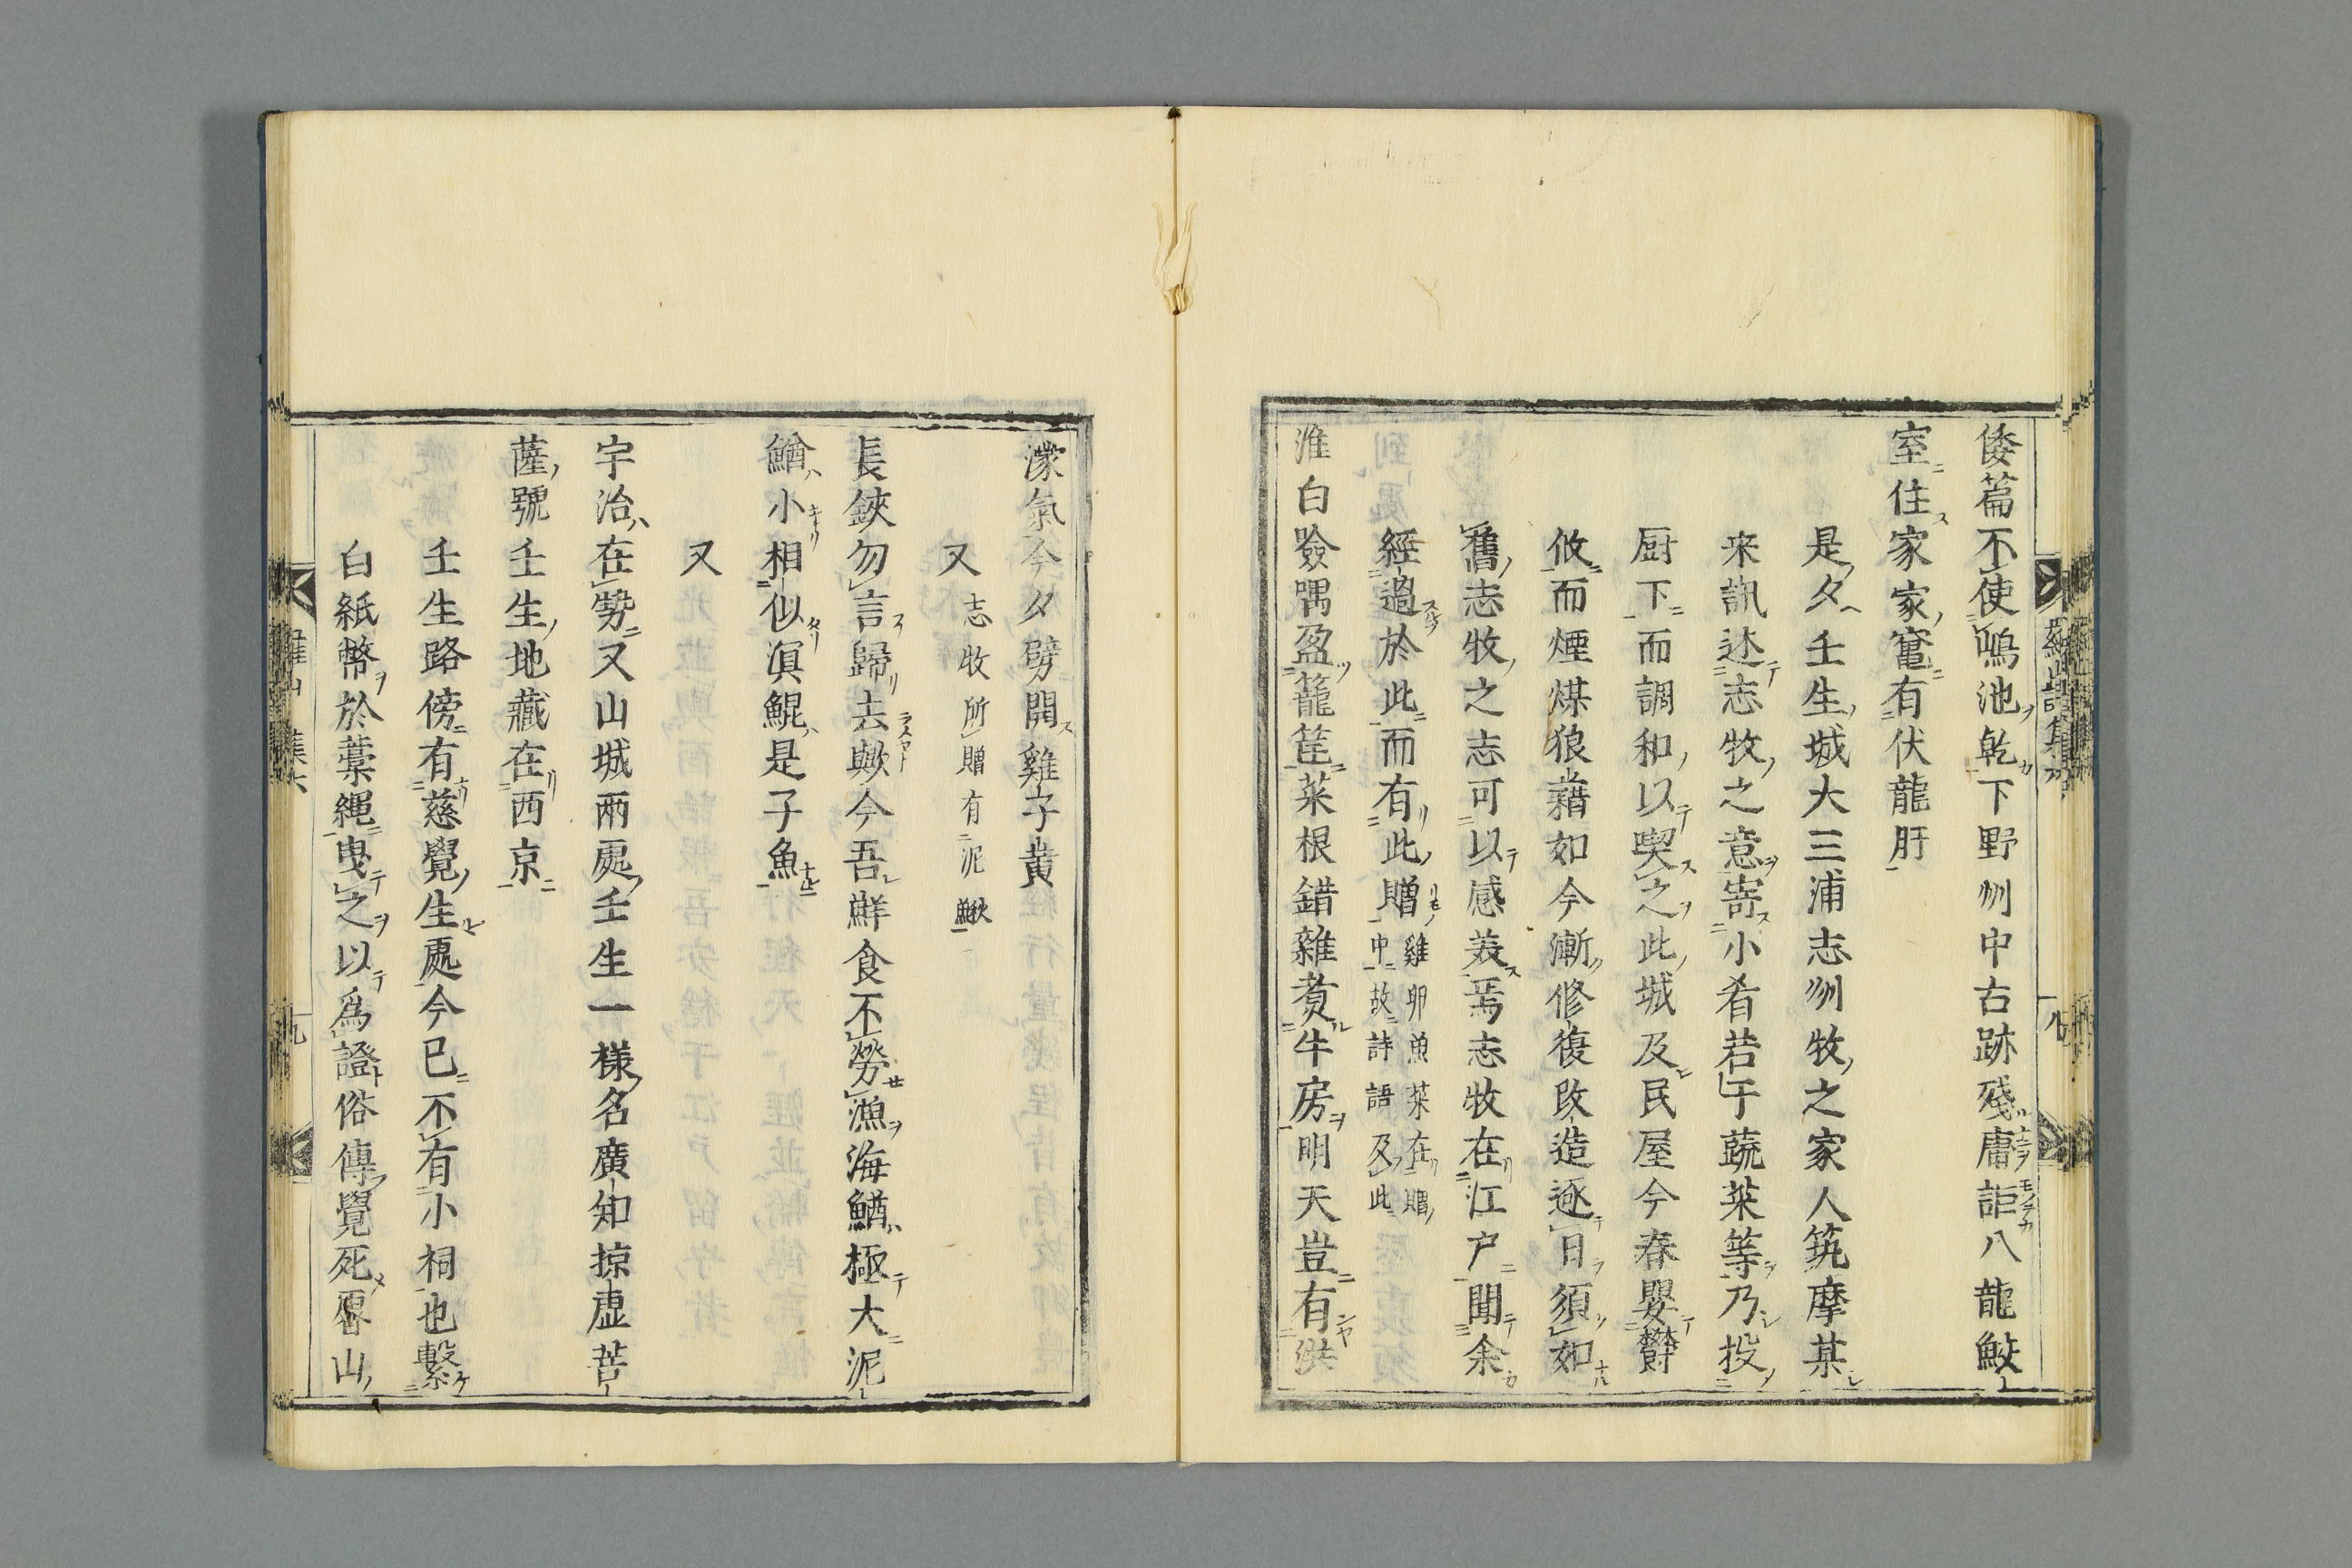 倭篇不使鳴池乾下野州中古跡殘庸詎八龍鮫
室住家家竃有伏龍肝
是夕壬生城大三浦志州牧之家人筑摩某
来訊述志牧之意寄小肴若干蔬菜等乃投
厨下而調和以喫之此城及民屋今春嬰欝
攸而煙煤狼藉如今漸修復改造逐日須如
舊志牧之志可以感羨焉志牧在江戸聞余
經過於此而有此贈雞卵魚菜在贈
中故詩語及此
淮白臉喁盈籠筐菜根錯雜煮牛房明天豈有洪
濛氣今夕劈開雞子黄
又志牧所贈有泥鰍
長鋏勿言歸去歟今吾鮮食不勞漁海鰌極大泥
鰌小相似溟鯤是子魚
又
宇治在勢又山城兩處壬生一樣名廣知掠虚苦
薩號壬生地藏在西京
壬生路傍有慈覺生處今已不有小祠也繫
白紙幣於藁繩曳之以爲證俗傳覺死畱山
羅山詩集
八
九